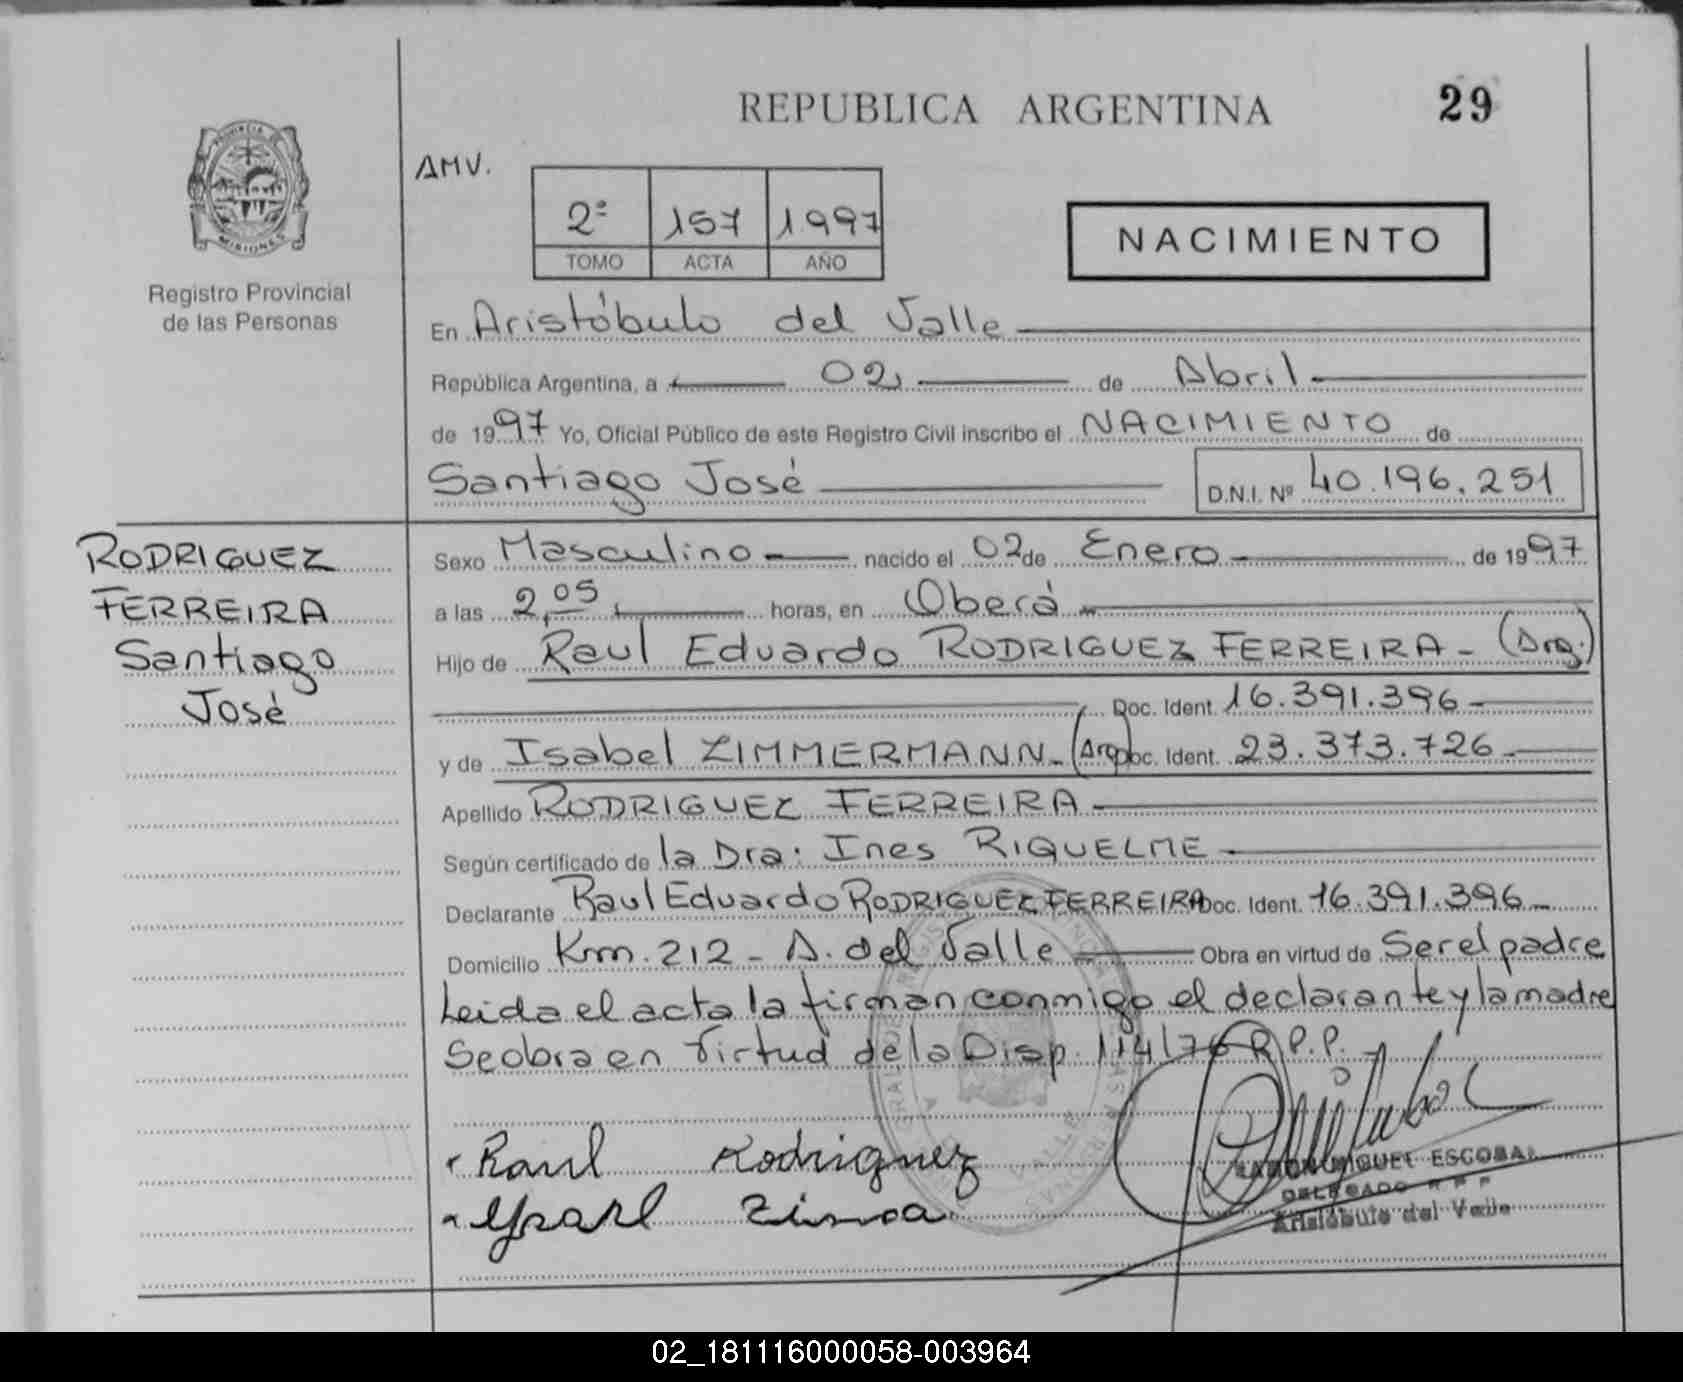 REPUBLICA ARGENTINA
29
PROVINCIA DE
MISIONES
Registro Provincial
de las Personas
AMV.
2º 157 1997
TOMO ACTA AÑO
NACIMIENTO
En Aristóbulo del Valle
República Argentina, a 02 de Abril
de 1997 Yo, Oficial Público de este Registro Civil inscribo el NACIMIENTO de
Santiago José D.N.I. Nº 40.196.251
RODRIGUEZ
FERREIRA
Santiago
José
Sexo Masculino nacido el 02 de Enero de 1997
a las 2,05 horas, en Oberá
Hijo de Raul Eduardo RODRIGUEZ FERREIRA - (Arg.)
Doc. Ident. 16.391.396
y de Isabel ZIMMERMANN - (Arg) Doc. Ident. 23.373.726
Apellido RODRIGUEZ FERREIRA
Según certificado de la Dra. Ines RIQUELME
Declarante Raul Eduardo RODRIGUEZ FERREIRA Doc. Ident. 16.391.396
Domicilio Km. 212 - A. del Valle Obra en virtud de Ser el padre
Leida el acta la firman conmigo el declarante y la madre
Se obra en virtud de la Disp. 114/76 R.P.P.
Raul Rodriguez
MIGUEL ESCOBAR
DELEGADO R P P
Aristóbulo del Valle
02_181116000058-003964